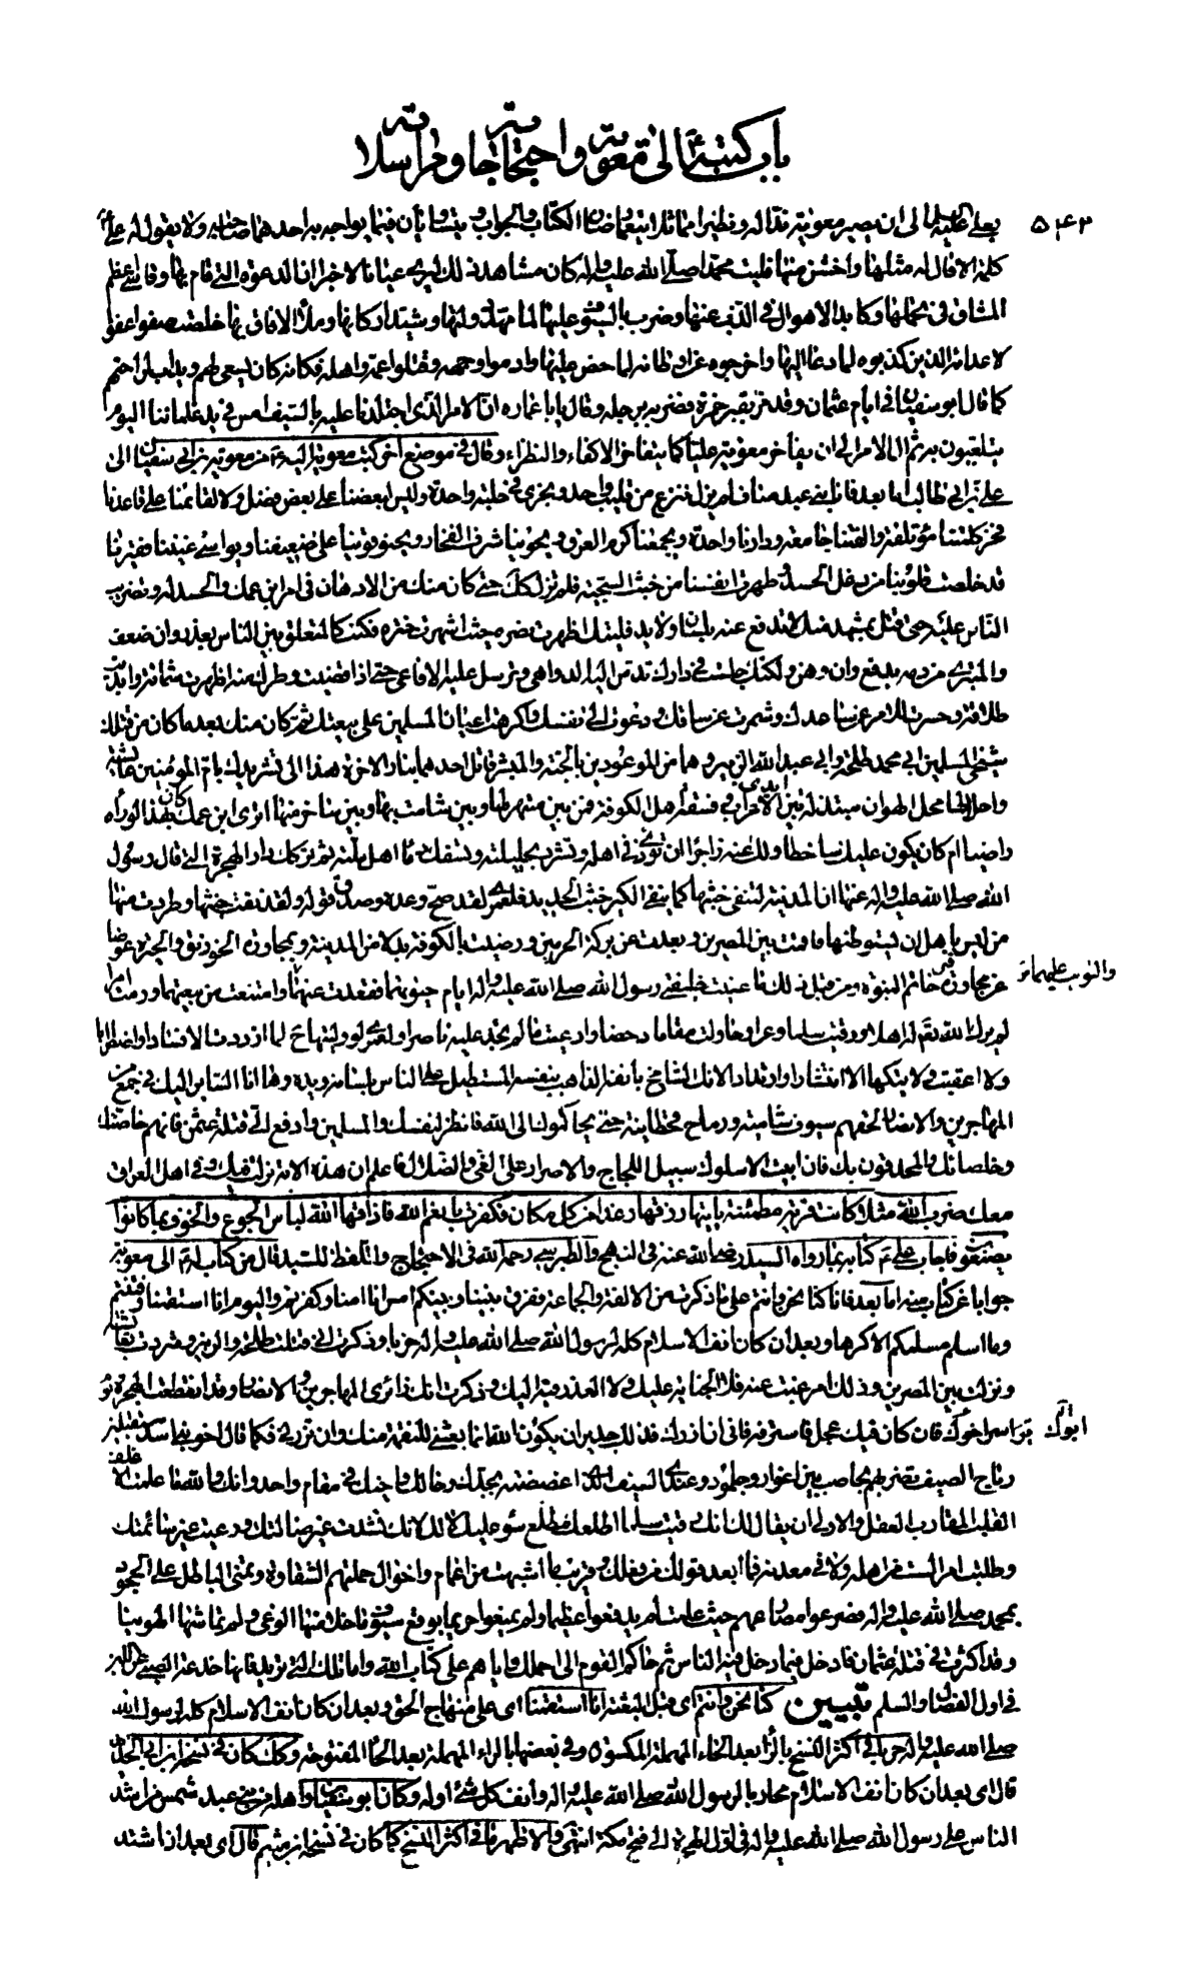 باب كتبه إلى معوية واحتجاجاته ومراسلاته
٥٤٣
بعلي عليه السلم إلى ان يصير معوية ندا له ونظيرا مماثلا يتعارضان الكتاب والجواب ويتساويان فيما يواجه به احدهما صاحبه ولا يقول له علي ع
كلمة الا قال له مثلها واخشن منها فليت محمدا صلى الله عليه واله كان شاهد ذلك ليرى عيانا لا خبرا ان الدعوة التي قام بها وقاسى اعظم
المشاق في تحملها وكابد الاهوال في الذب عنها وضرب بالسيوف عليها لما مهد دولتها وشيد اركانها وملأ الافاق بها خلصت صفوا عفوا
لاعدائه الذين كذبوه لما دعا اليها واخرجوه عن اوطانه لما حض عليها وادموا وجهه وقتلوا عمه واهله فكانه كان يسعى لهم ويدأب لراحتهم
كما قال ابو سفيان في ايام عثمان وقد مر بقبر حمزة وضربه برجله وقال يا با عمارة ان الامر الذي اجتلدنا عليه بالسيف امس في يد غلماننا اليوم
يتلعبون به ثم ال الامر الى ان يفاخر معوية عليا كما يتفاخر الاكفاء والنظراء وقال في موضع اخر كتب معوية اليه ع من معوية بن ابي سفيان الى
علي بن ابي طالب اما بعد فانا بني عبد مناف لم نزل ننزع من قليب واحد ونجري في حلبة واحدة وليس لبعضنا على بعض فضل ولا لقائمنا على قاعدنا
فخر كلمتنا مؤتلفة والفتنا جامعة ودارنا واحدة ويجمعنا كرم العرق ويحوينا شرف الفخار ويحنو قوينا على ضعيفنا ويواسي غنينا فقيرنا
قد خلصت قلوبنا من دغل الحسد وطهرت انفسنا من خبث السجية فلم نزل كك حتى كان منك من الادهان في امر ابن عمك والحسد له وتضريب
الناس عليه حتى قتل بمشهد منك لا تدفع عنه بلسان ولا يد فليتك اظهرت نصره حيث اشهرت ختره فكنت كالمتعلق بين الناس بعذر وان ضعف
والمتبرئ من دمه بدفع وان وهن ولكنك جلست في دارك تدس اليه الدواهي وترسل عليه الافاعي حتى اذا قضيت وطرك منه اظهرت شماتة وابديت
طلاقة وحسرت للامر عن ساعدك وشمرت عن ساقك ودعوت الى نفسك واكرهت اعيان المسلمين على بيعتك ثم كان منك بعد ما كان من قتلك
شيخي المسلمين ابي محمد طلحة وابي عبد الله الزبير وهما من الموعودين بالجنة والمبشر قاتل احدهما بنار الاخرة هذا الى تشريدك بام المؤمنين عايشة
واحلالها محل الهون مبتذلة بين ايدي الاعراب وفسقة اهل الكوفة فمن بين منتهر لها وبين شامت بها وبين ساخر منها اترى ابن عمك كان بهذا لو راه
راضيا ام كان يكون عليك ساخطا ولك عنه زاجرا ان تؤذي في اهله وتشرد بحليلته وتسفك دماء اهل ملته ثم تركك دار الهجرة التي قال رسول
الله صلى الله عليه واله عنها ان المدينة لتنفي خبثها كما ينفي الكير خبث الحديد فلعمري لقد صح وعده وصدق قوله ولقد نفت خبثها وطردت منها
من ليس باهل ان يستوطنها فاقمت بين المصرين وبعدت عن بركة الحرمين ورضيت بالكوفة بدلا من المدينة وبمجاورة الخورنق والحيرة عوضا
عن مجاورة قبر خاتم النبوة ومن قبل ذلك ما عيبت خليفتي رسول الله صلى الله عليه واله ايام حيوتهما فقعدت عنهما والتويت عليهما وامتنعت من بيعتهما ورمت امرا
لم يرك الله تع له اهلا ورقيت سلما وعرا وحاولت مقاما دحضا وادعيت ما لم تجد عليه ناصرا ولعمري لو وليتها ح لما ازددت الا فسادا واضطرابا
ولا اعقبت ولايتكها الا انتشارا وارتدادا لانك الشامخ بانفه الذاهب بنفسه المستطيل على الناس بلسانه ويده وها انا السائر اليك في جمع من
المهاجرين والانصار تحفهم سيوف شامية ورماح قحطانية حتى يحاكموك الى الله فانظر لنفسك والمسلمين وادفع الي قتلة عثمن فانهم خاصتك
وخلصائك والمحدقون بك فان ابيت الا سلوك سبيل اللجاج والاصرار على الغي والضلال فاعلم ان هذه الاية نزلت فيك وفي اهل العراق
معك ضرب الله مثلا كانت قرية مطمئنة ياتيها رزقها رغدا من كل مكان فكفرت بانعم الله فاذاقها الله لباس الجوع والخوف بما كانوا
يصنعون فاجاب علي ع كتابه بما رواه السيد رضي الله عنه في النهج والطبرسي رحمه الله في الاحتجاج واللفظ للسيد قال من كتاب له ع الى معوية
جوابا عن كتاب منه اما بعد فانا كنا نحن وانتم على ما ذكرت من الالفة والجماعة ففرق بيننا وبينكم امس انا امنا وكفرتم واليوم انا استقمنا وفتنتم
وما اسلم مسلمكم الا كرها وبعد ان كان انف الاسلام كله لرسول الله صلى الله عليه واله حزبا وذكرت اني قتلت طلحة والزبير وشردت بعايشة
ونزلت بين المصرين وذلك امر غبت عنه فلا الجناية عليك ولا العذر فيه اليك وذكرت انك زائري في المهاجرين والانصار وقد انقطعت الهجرة يوم
اسر اخوك فان كان فيك عجل فاسترفه فاني ان ازرك فذلك جدير ان يكون الله انما بعثني للنقمة منك وان تزرني فكما قال اخو بني اسد مستقبلين
رياح الصيف تضربهم بحاصب بين اغوار وجلمود وعندي السيف الذي اعضضته بجدك وخالك واخيك في مقام واحد وانك والله ما علمت الاغلف
القلب المقارب العقل والاولى ان يقال لك انك رقيت سلما اطلعك مطلع سوء عليك لا لك لانك نشدت غير ضالتك ورعيت غير سائمتك
وطلبت امرا لست من اهله ولا في معدنه فما ابعد قولك من فعلك وقريب ما اشبهت من اعمام واخوال حملتهم الشقاوة وتمنى الباطل على الجحود
بمحمد صلى الله عليه واله فصرعوا مصارعهم حيث علمت لم يدفعوا عظيما ولم يمنعوا حريما بوقع سيوف ما خلا منها الوغى ولم تماشها الهوينا
وقد اكثرت في قتلة عثمان فادخل فيما دخل فيه الناس ثم حاكم القوم الي احملك واياهم على كتاب الله واما تلك التي تريد فانها خدعة الصبي عن اللبن
في اول الفصال والسلم تبيين كنا نحن وانتم اي قبل البعثة انا استقمنا اي على منهاج الحق وبعد ان كان انف الاسلام كله لرسول الله
صلى الله عليه واله حزبا في اكثر النسخ بالزا بعد الحاء المهملة المكسورة وفي بعضها بالراء المهملة بعد الحاء المفتوحة وكك كان في نسخة ابن ابي الحديد
قال اي بعد ان كان انف الاسلام محاربا لرسول الله صلى الله عليه واله وانف كل شئ اوله وكان ابو سفيان واهله من بني عبد شمس من اشد
الناس على رسول الله صلى الله عليه واله في اول الهجرة الى فتح مكة انتهى والاظهر ما في اكثر النسخ كما كان في نسخة ابن ميثم قال اي بعد ان اشتد
والتويت عليهما
ابوك